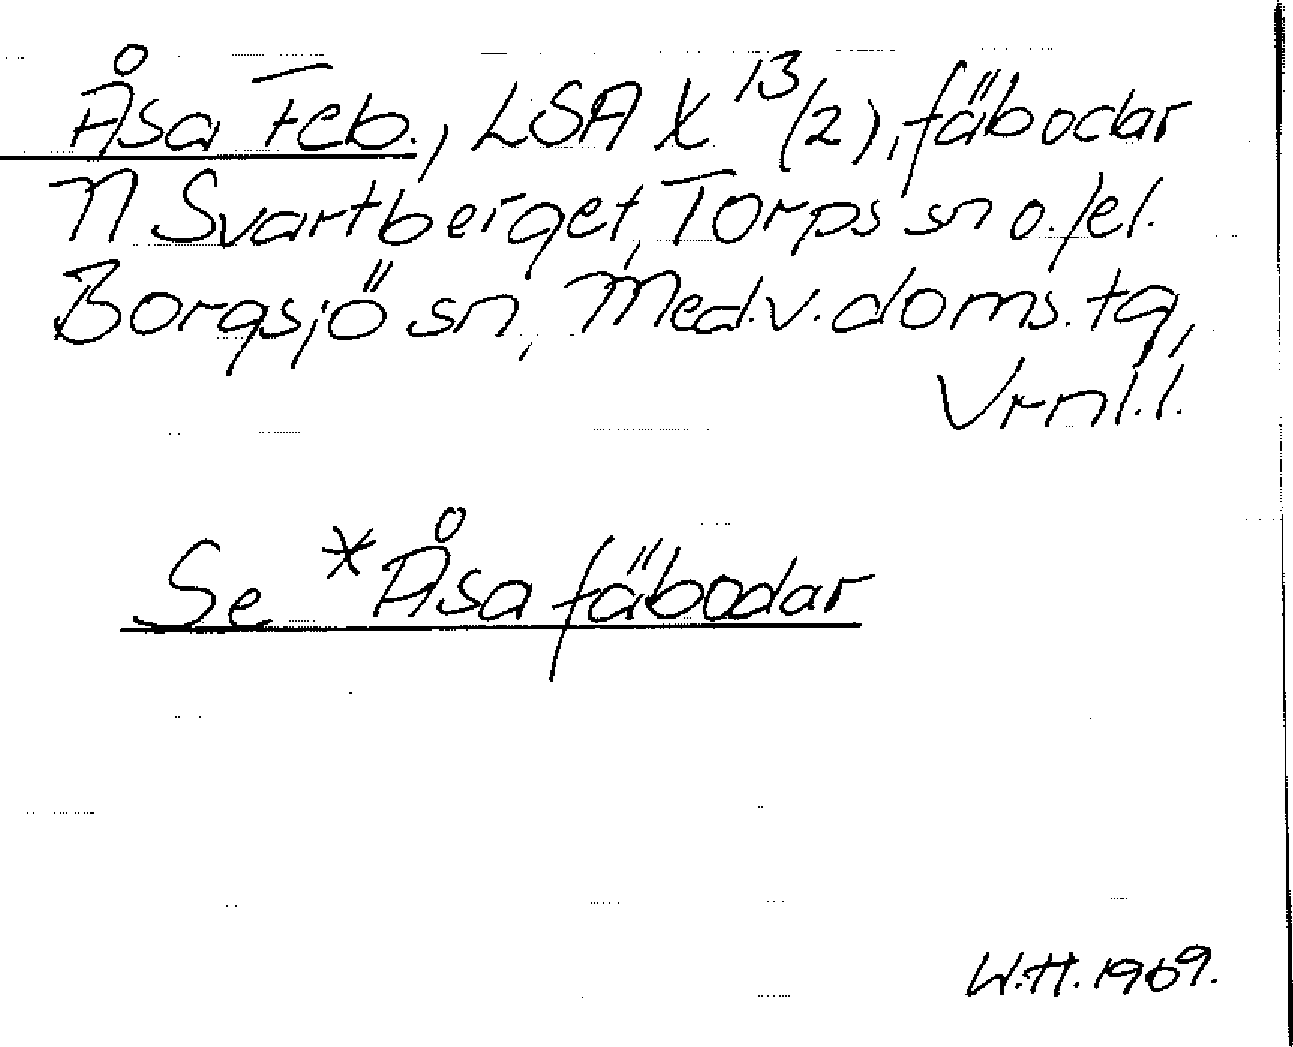 Åsa Feb., LSA X 13/(2), fäbodar
N Svartberget, Torps sn o./el.
Borgsjö sn, Med.v. doms. tg,
Vrnl.l.
Se *Åsa fäbodar
W.H. 1969.